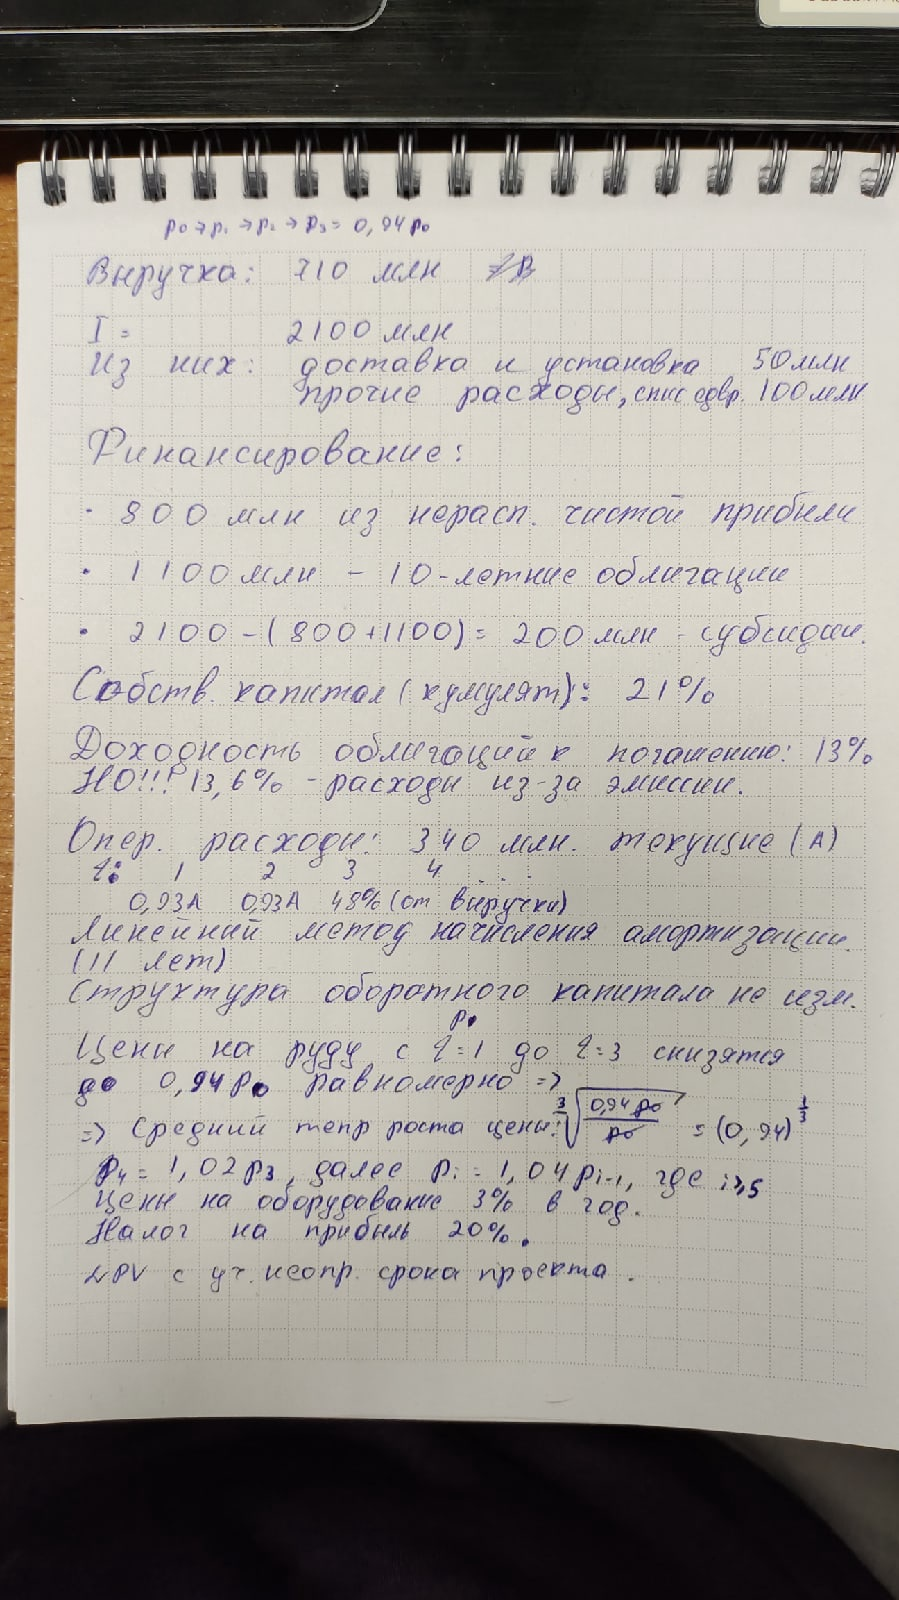 p₀ → p₁ → p₂ → p₃ = 0,94 p₀
Выручка: 710 млн
I = 2100 млн
Из них: доставка и установка 50 млн
прочие расходы, спис едвр. 100 млн
Финансирование:
· 800 млн из нерасп. чистой прибыли
· 1100 млн - 10-летние облигации
· 2100 - (800+1100) = 200 млн - субсидии.
Собств. капитал (кумулят): 21%
Доходность облигаций к погашению: 13%
НО!!! 13,6% - расходы из-за эмиссии.
Опер. расходы: 340 млн. текущие (А)
t: 1 2 3 4 ...
0,93А 0,93А 48% (от выручки)
Линейный метод начисления амортизации.
(11 лет)
Структура оборотного капитала не изм.
p₀
Цены на руду с t=1 до t=3 снизятся
до 0,94p₀ равномерно =>
=> Средний темп роста цены: ³√(0,94p₀/p₀) = (0,94)^(1/3)
p₄ = 1,02p₃, далее pᵢ = 1,04pᵢ₋₁, где i≥5
Цены на оборудование 3% в год.
Налог на прибыль 20%.
NPV с уч. неопр. срока проекта.